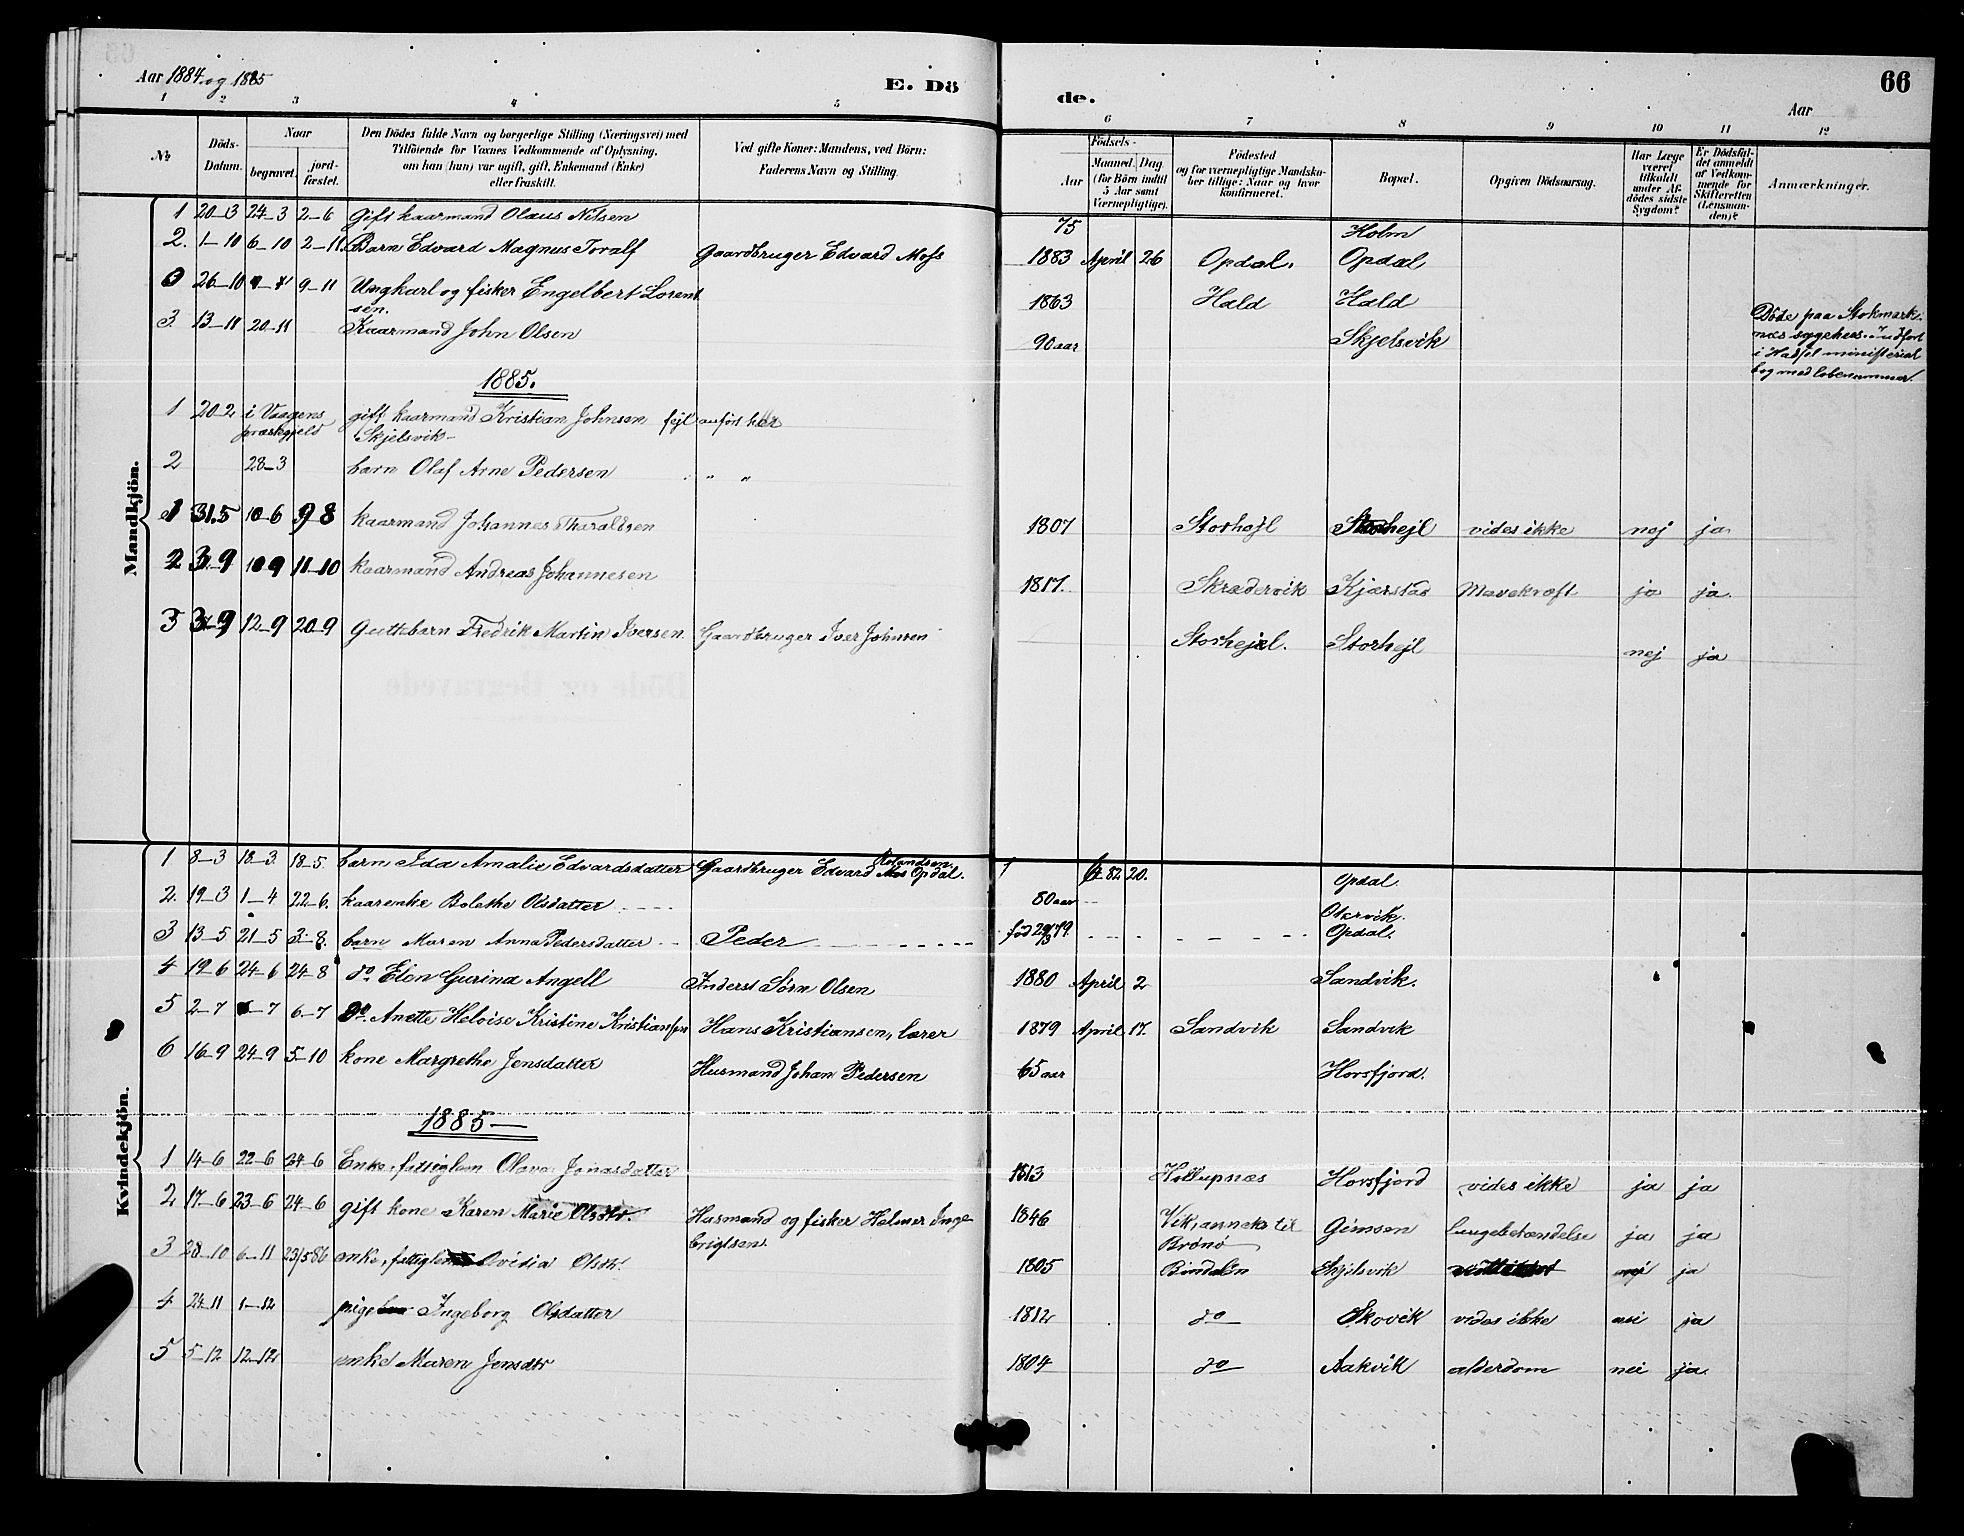 Aar 1884 og 1885
E. Dö
de.
Aar
66
1 2 3 4 5 6 7 8 9 10 11 12
№
Döds-Datum.
Naar
begravet.
jord-fæstet.
Den Dödes fulde Navn og borgerlige Stilling (Næringsvei) med
Tilföiende for Voxnes Vedkommende af Oplysning,
om han (hun) var ugift, gift, Enkemand (Enke)
eller fraskilt.
Ved gifte Koner: Mandens, ved Börn:
Faderens Navn og Stilling.
Födsels-
Aar
Maaned. Dag
(for Börn indtil
5 Aar samt
Værnepligtige).
Födested
og for værnepligtige Mandskaber tillige: Naar og hvor
konfirmeret.
Bopæl.
Opgiven Dödsaarsag.
Har Læge
været
tilkaldt
under Afdödes sidste
Sygdom?
Er Dödsfaldet anmeldt
af Vedkommende for
Skifteretten
(Lensmanden)?
Anmærkninger.
Mandkjön.
1 20-3 24-3 2-6 Gift kaarmand Olaus Nilsen 75 Holm
2. 1-10 6-10 2-11 Barn Edvard Magnus Toralf Gaardbruger Edvard Mohs 1883 April 26 Opdal. Opdal
26-10 9-11 Ungkarl og fisker Engelbert Lorentsen. 1863 Hald Hald
3. 13-11 20-11 Kaarmand John Olsen 90 aar Skjelsvik
Döde paa Stokmarknæs sygehus. indfört
i Hadsel ministerial
bog med löbenummer.
1885.
1 20.2 i Vaagens præstegjeld gift kaarmand Kristian Johnsen fejl anfört her
Skjelsvik-
2 28-3 barn Olaf Arne Pedersen " "
1 31.5 10-6 9-8 kaarmand Johannes Tharaldsen 1807 Storhejl Storhejl vides ikke nej ja
2 3.9 10-9 11-10 kaarmand Andreas Johannesen 1817. Skrædervik Kjærstad Mavekræft ja ja.
3 3-9 12-9 20-9 Guttebarn Fredrik Martin Iversen Gaardbruger Iver Johnsen Storhejl. Storhejl nej ja
Kvindekjön.
1 8-3 18-3. 18-5. barn Ida Amalie Edvardsdatter Gaardbruger Edvard Rolandsen Mos Opdal. 82 20. Opdal.
2. 19-3 1-4 22-6. kaarenke Bolethe Olsdatter 80 aar Okervik.
3 13-5 21-5 3-8. barn Maren Anna Pedersdatter Peder Opdal.
4 19-6 24-6 24-8 do Elen Gurina Angell Inderst Sörn Olsen 1880 April 2 Sandvik.
5 2-7 6-7 6-7 do. Anette Heloise Kristine Kristiansen Hans Kristiansen, lærer 1879 April 17. Sandvik Sandvik
6 16-9 24-9 5-10 kone Margrethe Jensdatter Husmand Johan Pedersen 65 aar Horsfjord.
1885-
1 14-6 22-6 24-6 Enke, fattiglem Olava Jonasdatter 1813 Hollupnæs Horsfjord vides ikke ja ja
2 17-6 23-6 24-6 gift kone Karen Marie Olsdtr. Husmand og fisker Helmer Ingebrigtsen. 1846 Vik, anneks til Brönö Gimsen lungebetændelse ja ja
3 28-10 6-11 23/5 86 enke, fattiglem Ovidia Olsdtr. 1805 Bindalen Skjelsvik nej ja
4 24-11 1-12 pige Ingeborg Olsdatter 1812 do Skovik vides ikke nei ja
5 5-12 12-12 enke Maren Jensdtr 1804 do Aakvik alderdom nei ja.